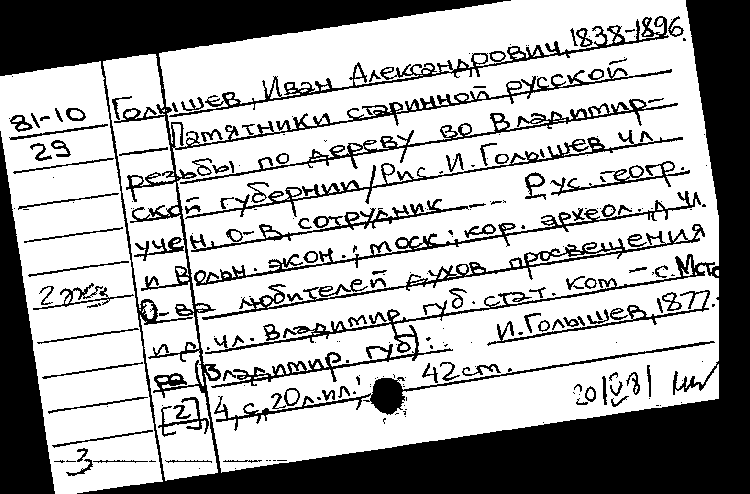 Голышев, Иван Александрович, 1838-1896.
81-10
29
Памятники старинной русской
резьбы по дереву во Владимир-
ской губернии / Рис. И. Голышев, чл.
учен. о-в, сотрудник --- Рус. геогр.
и Вольн. экон.; моск.; кор. археол., д. чл.
2 экз
О-ва любителей духов. просвещения
и д. чл. Владимир. губ. стат. ком. - с. Мсте
ра (Владимир. губ): И. Голышев, 1877.-
[2], 4, с, 20 л. ил.; 42 ст.
3